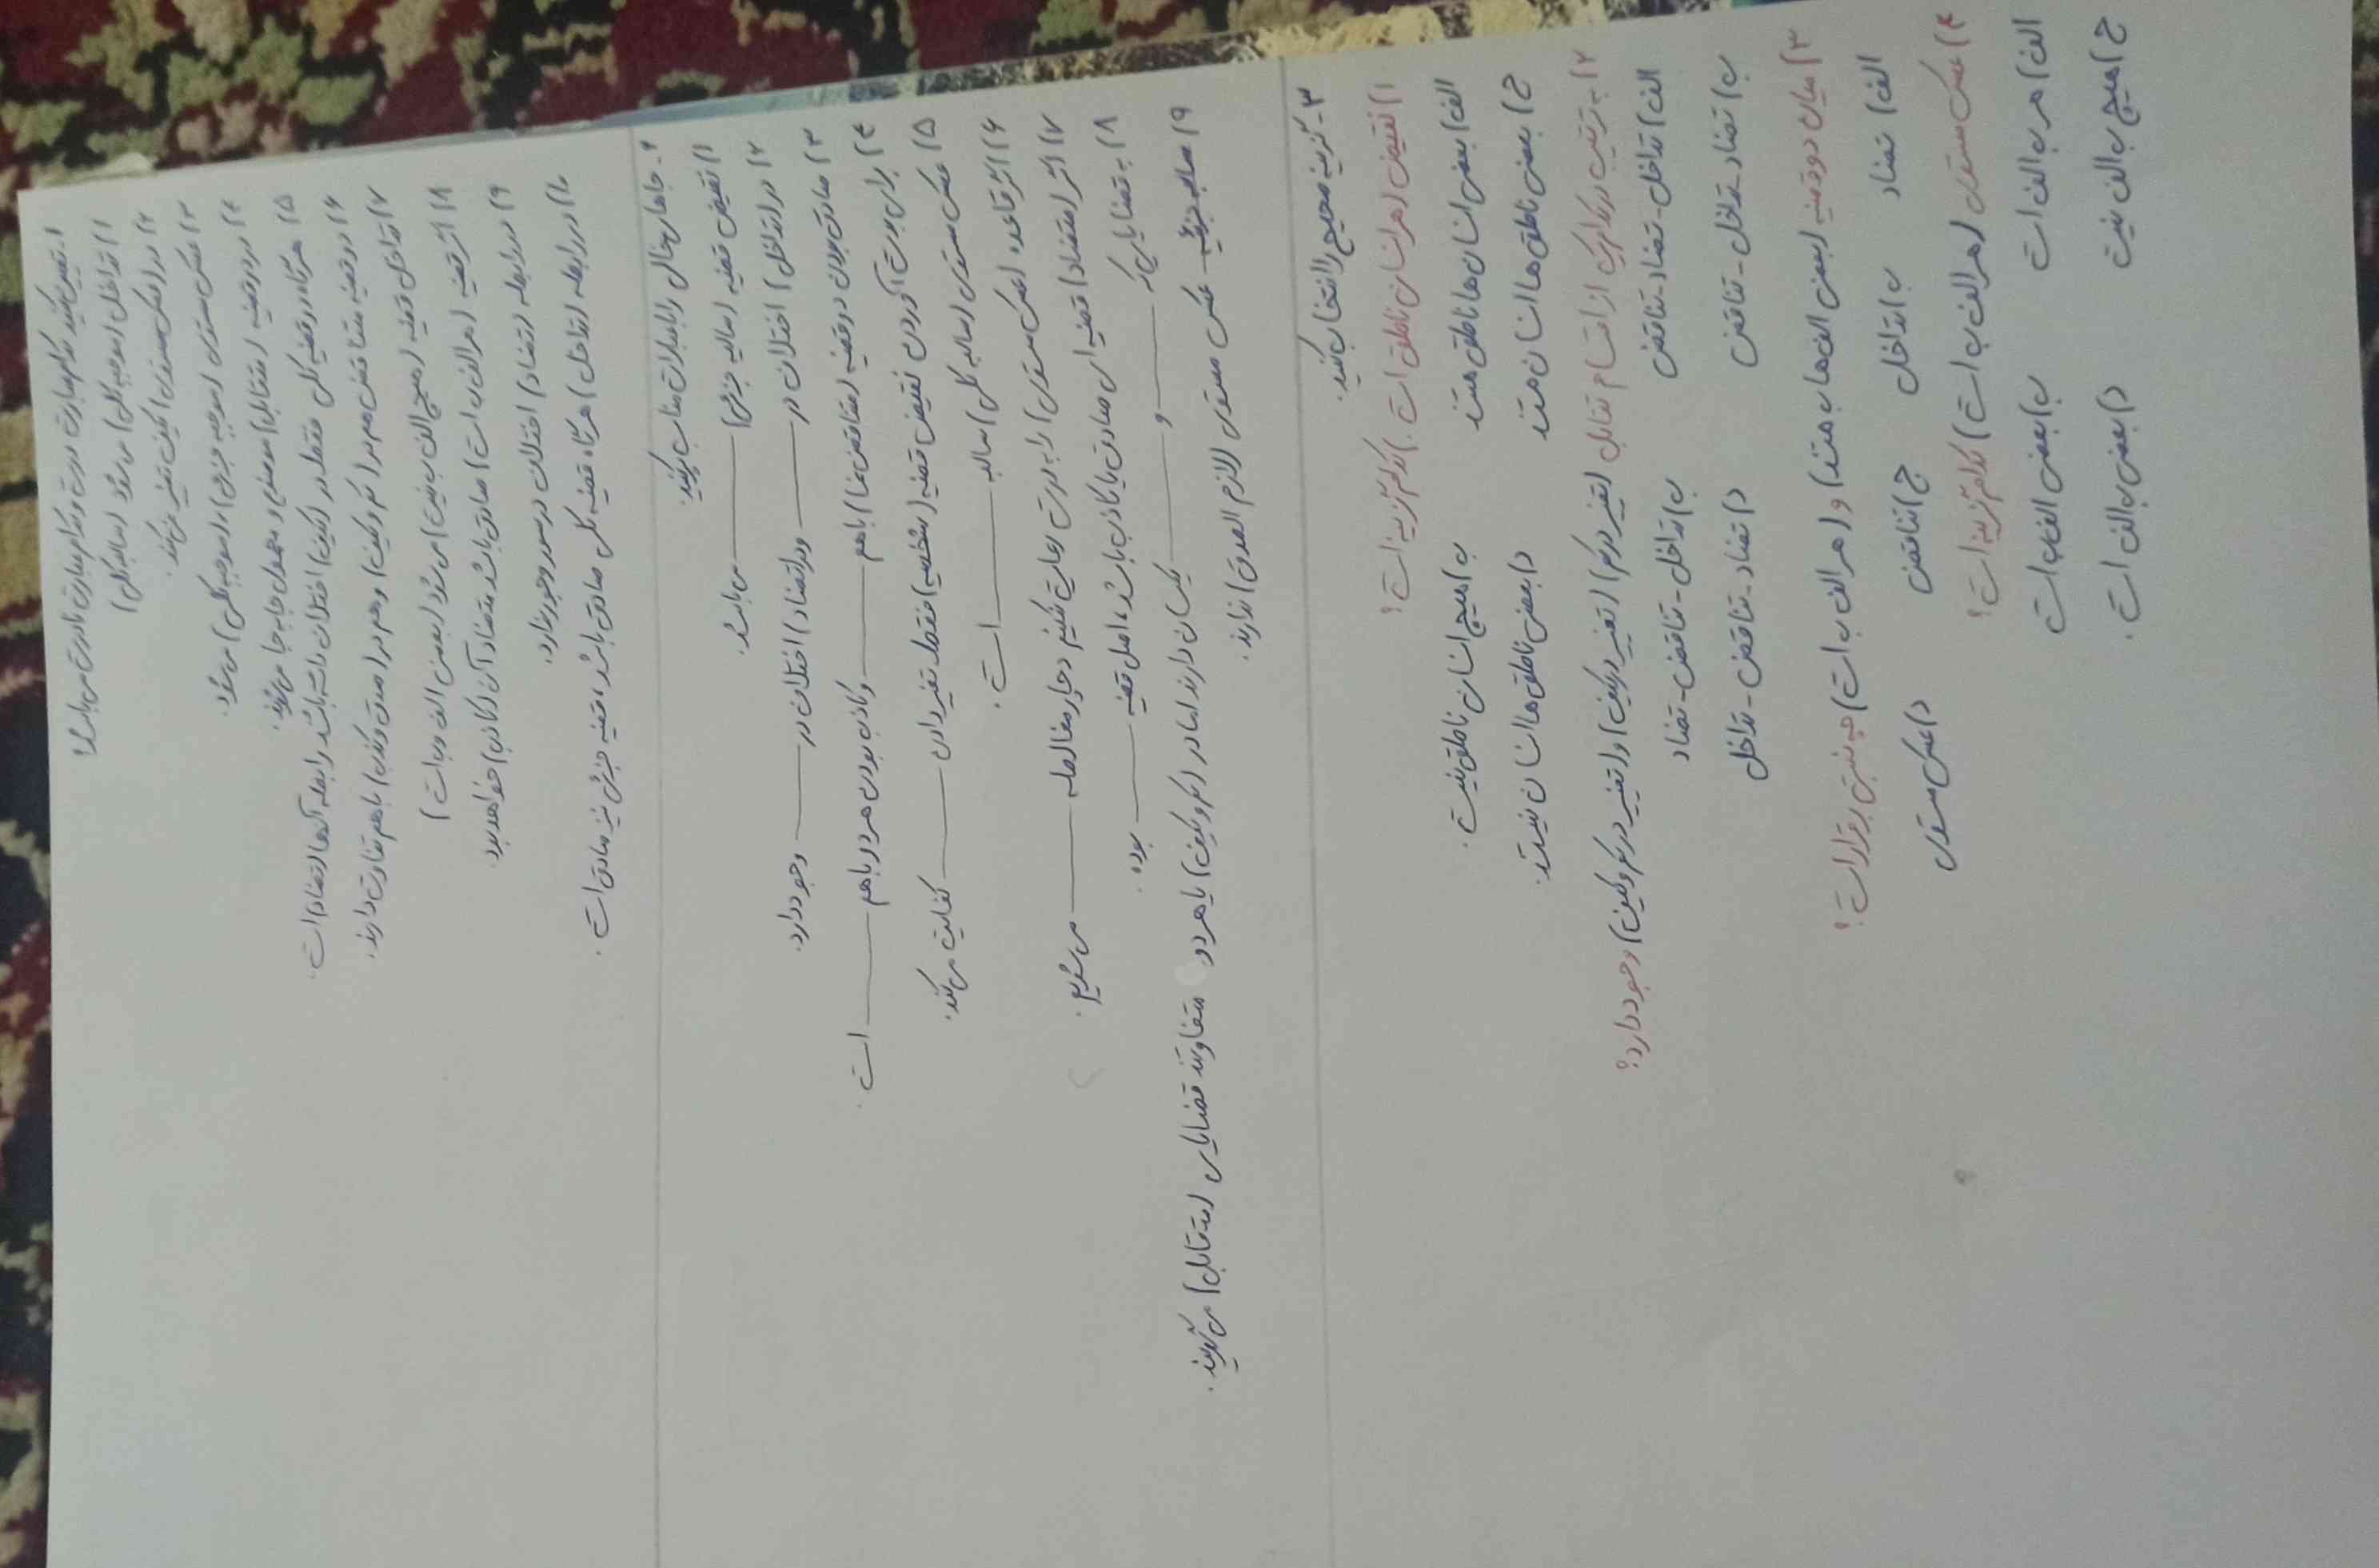 ۱- تعیین کنید کدام عبارت درست و کدام عبارت نادرست می‌باشد؟
۱) تداخل (موجبه کلی) می‌شود (سالبه کلی)
۲) در (عکس مستوی) کیف قضیه می‌کند.
۳) عکس مستوی (موجبه جزئی)، (موجبه کلی) می‌شود.
۴) در دو قضیه (متقابل) موضوع و محمول جابه‌جا می‌شوند.
۵) هرگاه دو قضیه کلی فقط در (کیف) اختلاف داشته باشد رابطه آنها (تضاد) است.
۶) دو قضیه متناقض هم در (کم و کیف) و هم در (صدق و کذب) باهم تفاوت دارند.
۷) تداخل قضیه (هیچ الف ب نیست) می‌شود (بعضی الف ب است)
۸) اگر قضیه (هر الف ب است) صادق باشد متضاد آن (کاذب) خواهد بود.
۹) در رابطه (تضاد) اختلاف در سور وجود ندارد.
۱۰) در رابطه (تداخل) هرگاه قضیه کلی صادق باشد، قضیه جزئی نیز صادق است.
۲- جاهای خالی را با عبارات مناسب پر کنید.
۱) نقیض قضیه (سالبه جزئی) ــــــ می‌باشد.
۲) در (تداخل) اختلاف در ــــــ و در (تضاد) اختلاف در ــــــ وجود دارد.
۳) صادق بودن دو قضیه (متناقض‌نما) باهم ــــــ و کاذب بودن هر دو باهم ــــــ است.
۴) برای بدست آوردن نقیض قضیه (شخصیه) فقط تغییر دادن ــــــ کفایت می‌کند.
۵) عکس مستوی (سالبه کلی) سالبه ــــــ است.
۶) اگر قاعده (عکس مستوی) را به درست رعایت نکنیم دچار مغالطه ــــــ می‌شویم.
۷) اگر (متضاد) قضیه‌ای صادق یا کاذب باشد، اصل قضیه ــــــ بوده.
۸) به قضایایی که ــــــ و ــــــ یکسان دارند اما در (کم و کیف) یا هر دو متفاوتند قضایای (متقابل) می‌گویند.
۹) سالبه جزئیه عکس مستوی (لازم الصدق) ندارند.
۳- گزینه صحیح را انتخاب کنید.
۱) نقیض (هر انسان ناطق است.) کدام گزینه است؟
الف) بعضی انسان ها ناطق هستند ب) هیچ انسان ناطق نیست.
ج) بعضی ناطق ها انسان هستند د) بعضی ناطق ها انسان نیستند.
۲) به ترتیب در کدام یک از اقسام تقابل (تغییر در کم) (تغییر در کیف) و (تغییر در کم و کیف) وجود دارد؟
الف) تداخل - تضاد - تناقض ب) تداخل - تناقض - تضاد
ب) تضاد - تداخل - تناقض د) تضاد - تناقض - تداخل
۳) میان دو قضیه (بعضی الف‌ها ب هستند) و (هر الف ب است) چه نسبتی برقرار است؟
الف) تضاد ب) تداخل ج) تناقض د) عکس مستوی
۴) عکس مستوی (هر الف ب است) کدام گزینه است؟
الف) هر ب الف است ب) بعضی الف ب است
ج) هیچ ب الف نیست د) بعضی ب الف است.